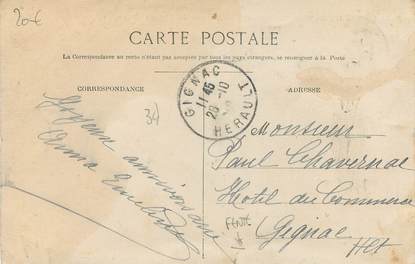 20€
CARTE POSTALE
La Correspondance au recto n'étant pas acceptée par tous les pays étrangers, se renseigner à la Poste
CORRESPONDANCE
ADRESSE
GIGNAC
11 45
26-10
HERAULT
34
Joyeux anniversaire
Monsieur
Paul Chavernac
Hotel du Commerce
Gignac
Hlt